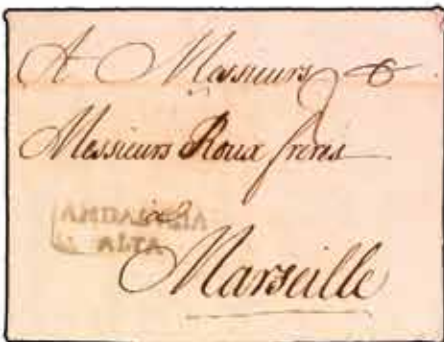 A Messieurs &
Messieurs Roux freres
ANDALUCIA
ALTA
a
Marseille